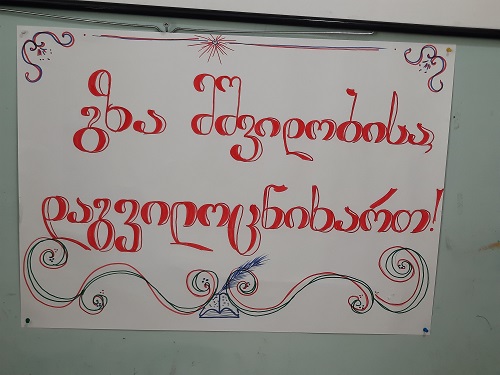 გზა მშვიდობისა,
დაგვილოცნიხართ!